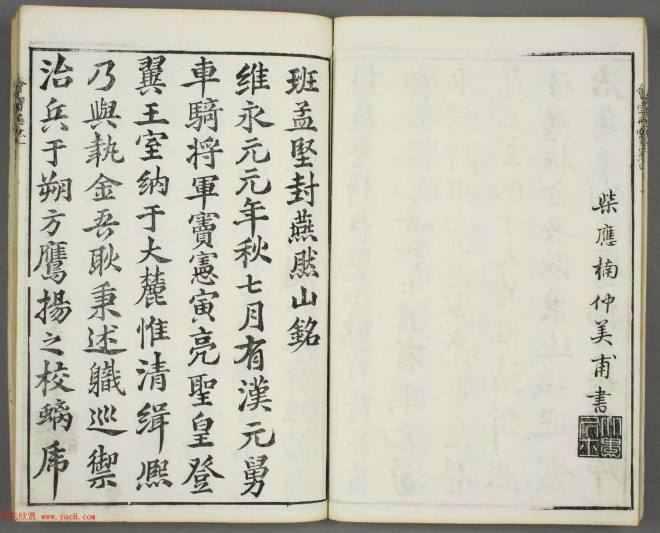 柴應楠仲美甫書
班孟堅封燕然山銘
維永元元年秋七月有漢元舅
車騎將軍竇憲寅亮聖皇登
翼王室納于大麓惟清緝熙
乃與執金吾耿秉述職巡禦
治兵于朔方鷹揚之校螭虎
www.yac8.com